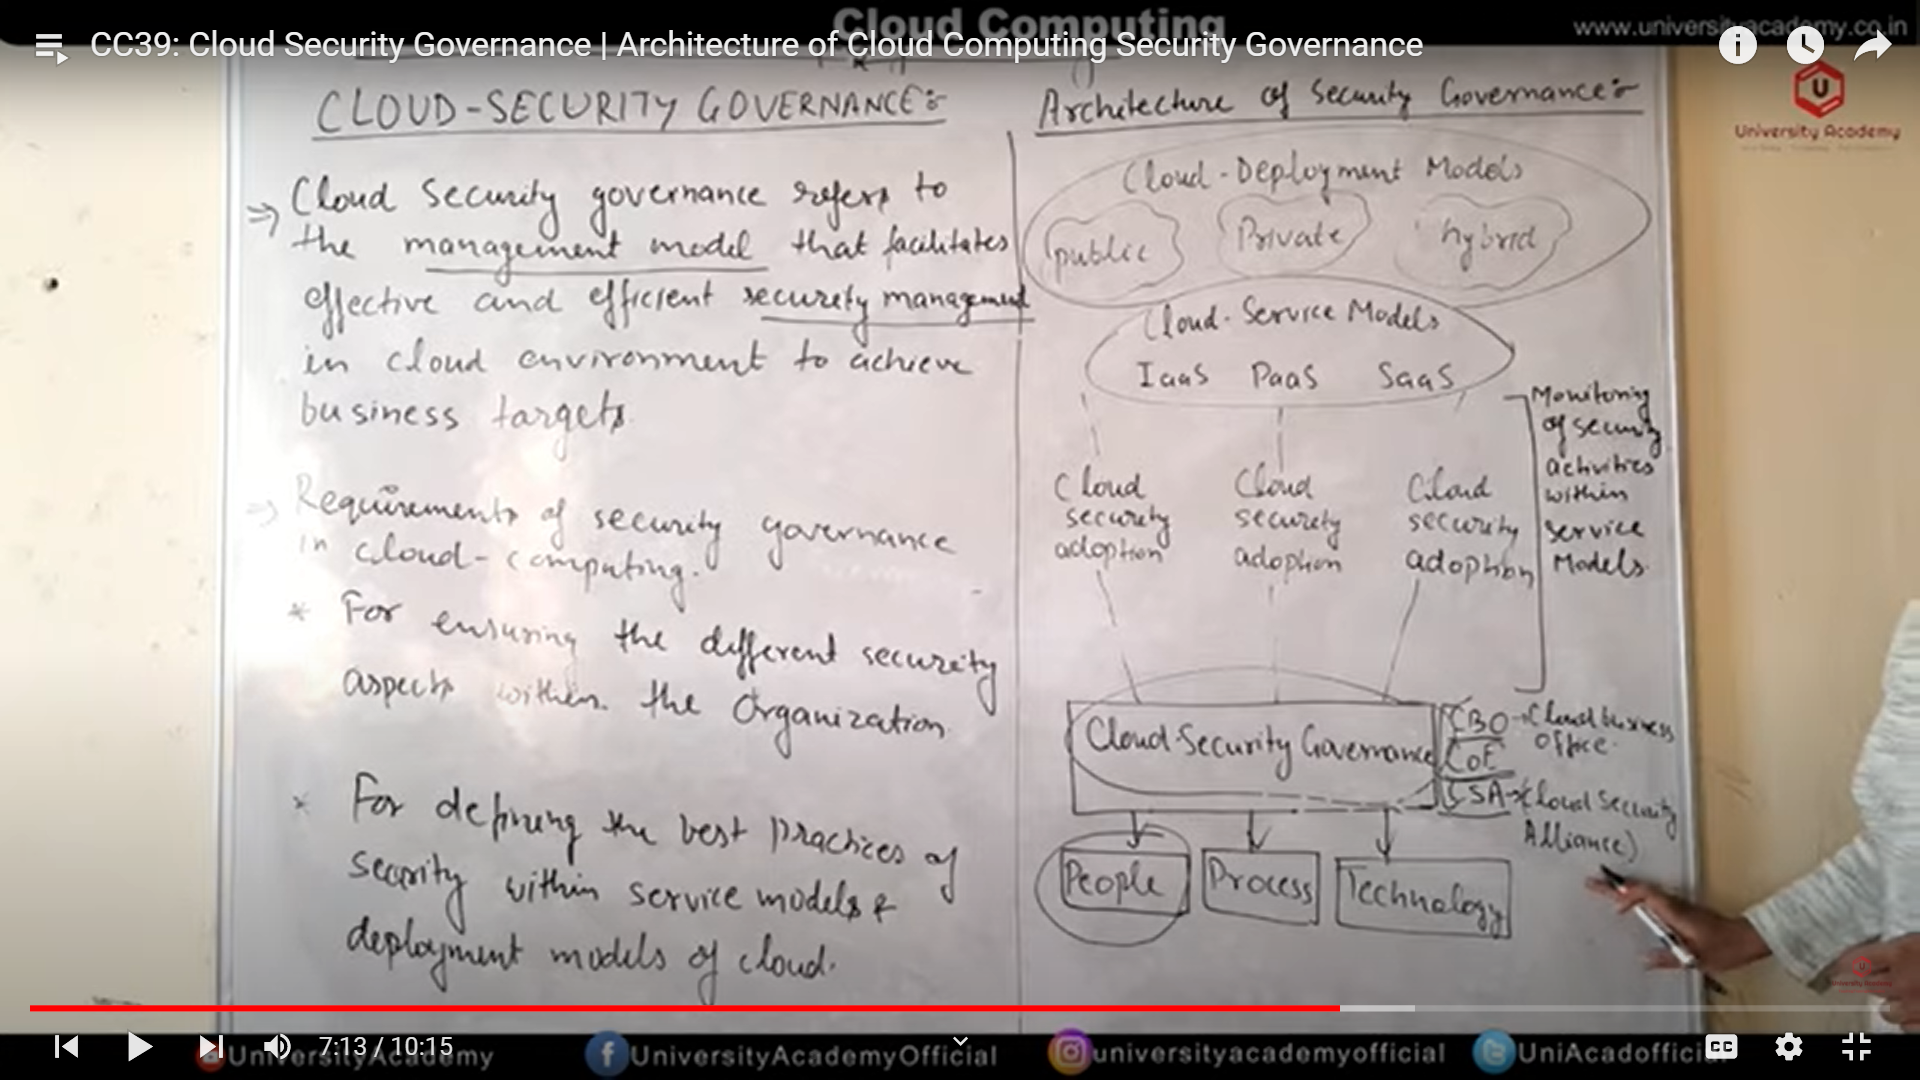 Cloud Computing
www.universityacademy.co.in
CC39: Cloud Security Governance | Architecture of Cloud Computing Security Governance
University Academy
CLOUD-SECURITY GOVERNANCE:-
⇒ Cloud Security governance refers to
the management model that facilitates
effective and efficient security management
in cloud environment to achieve
business targets.
⇒ Requirements of security governance
in cloud-computing.
* For ensuring the different security
aspects within the Organization
* For defining the best practices of
security within service models &
deployment models of cloud.
Architecture of Security Governance:-
Cloud-Deployment Models
public Private hybrid
Cloud-Service Models
IaaS PaaS SaaS
Monitoring
of security
activities
within
service
Models
Cloud
security
adoption
Cloud
security
adoption
Cloud
security
adoption
Cloud-Security Governance
CBO → Cloud business
Office
CoE
CSA → (Cloud Security
Alliance)
People Process Technology
7:13 / 10:15
UniversityAcademy
f UniversityAcademyOfficial
universityacademyofficial
UniAcadofficial
CC